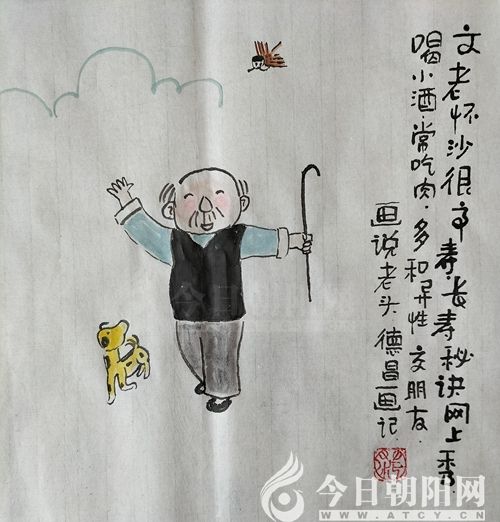 文老怀沙很高寿.长寿秘诀网上秀
喝小酒.常吃肉.多和异性交朋友.
画说老头 德昌画记
今日朝阳网
WWW.ATCY.CN